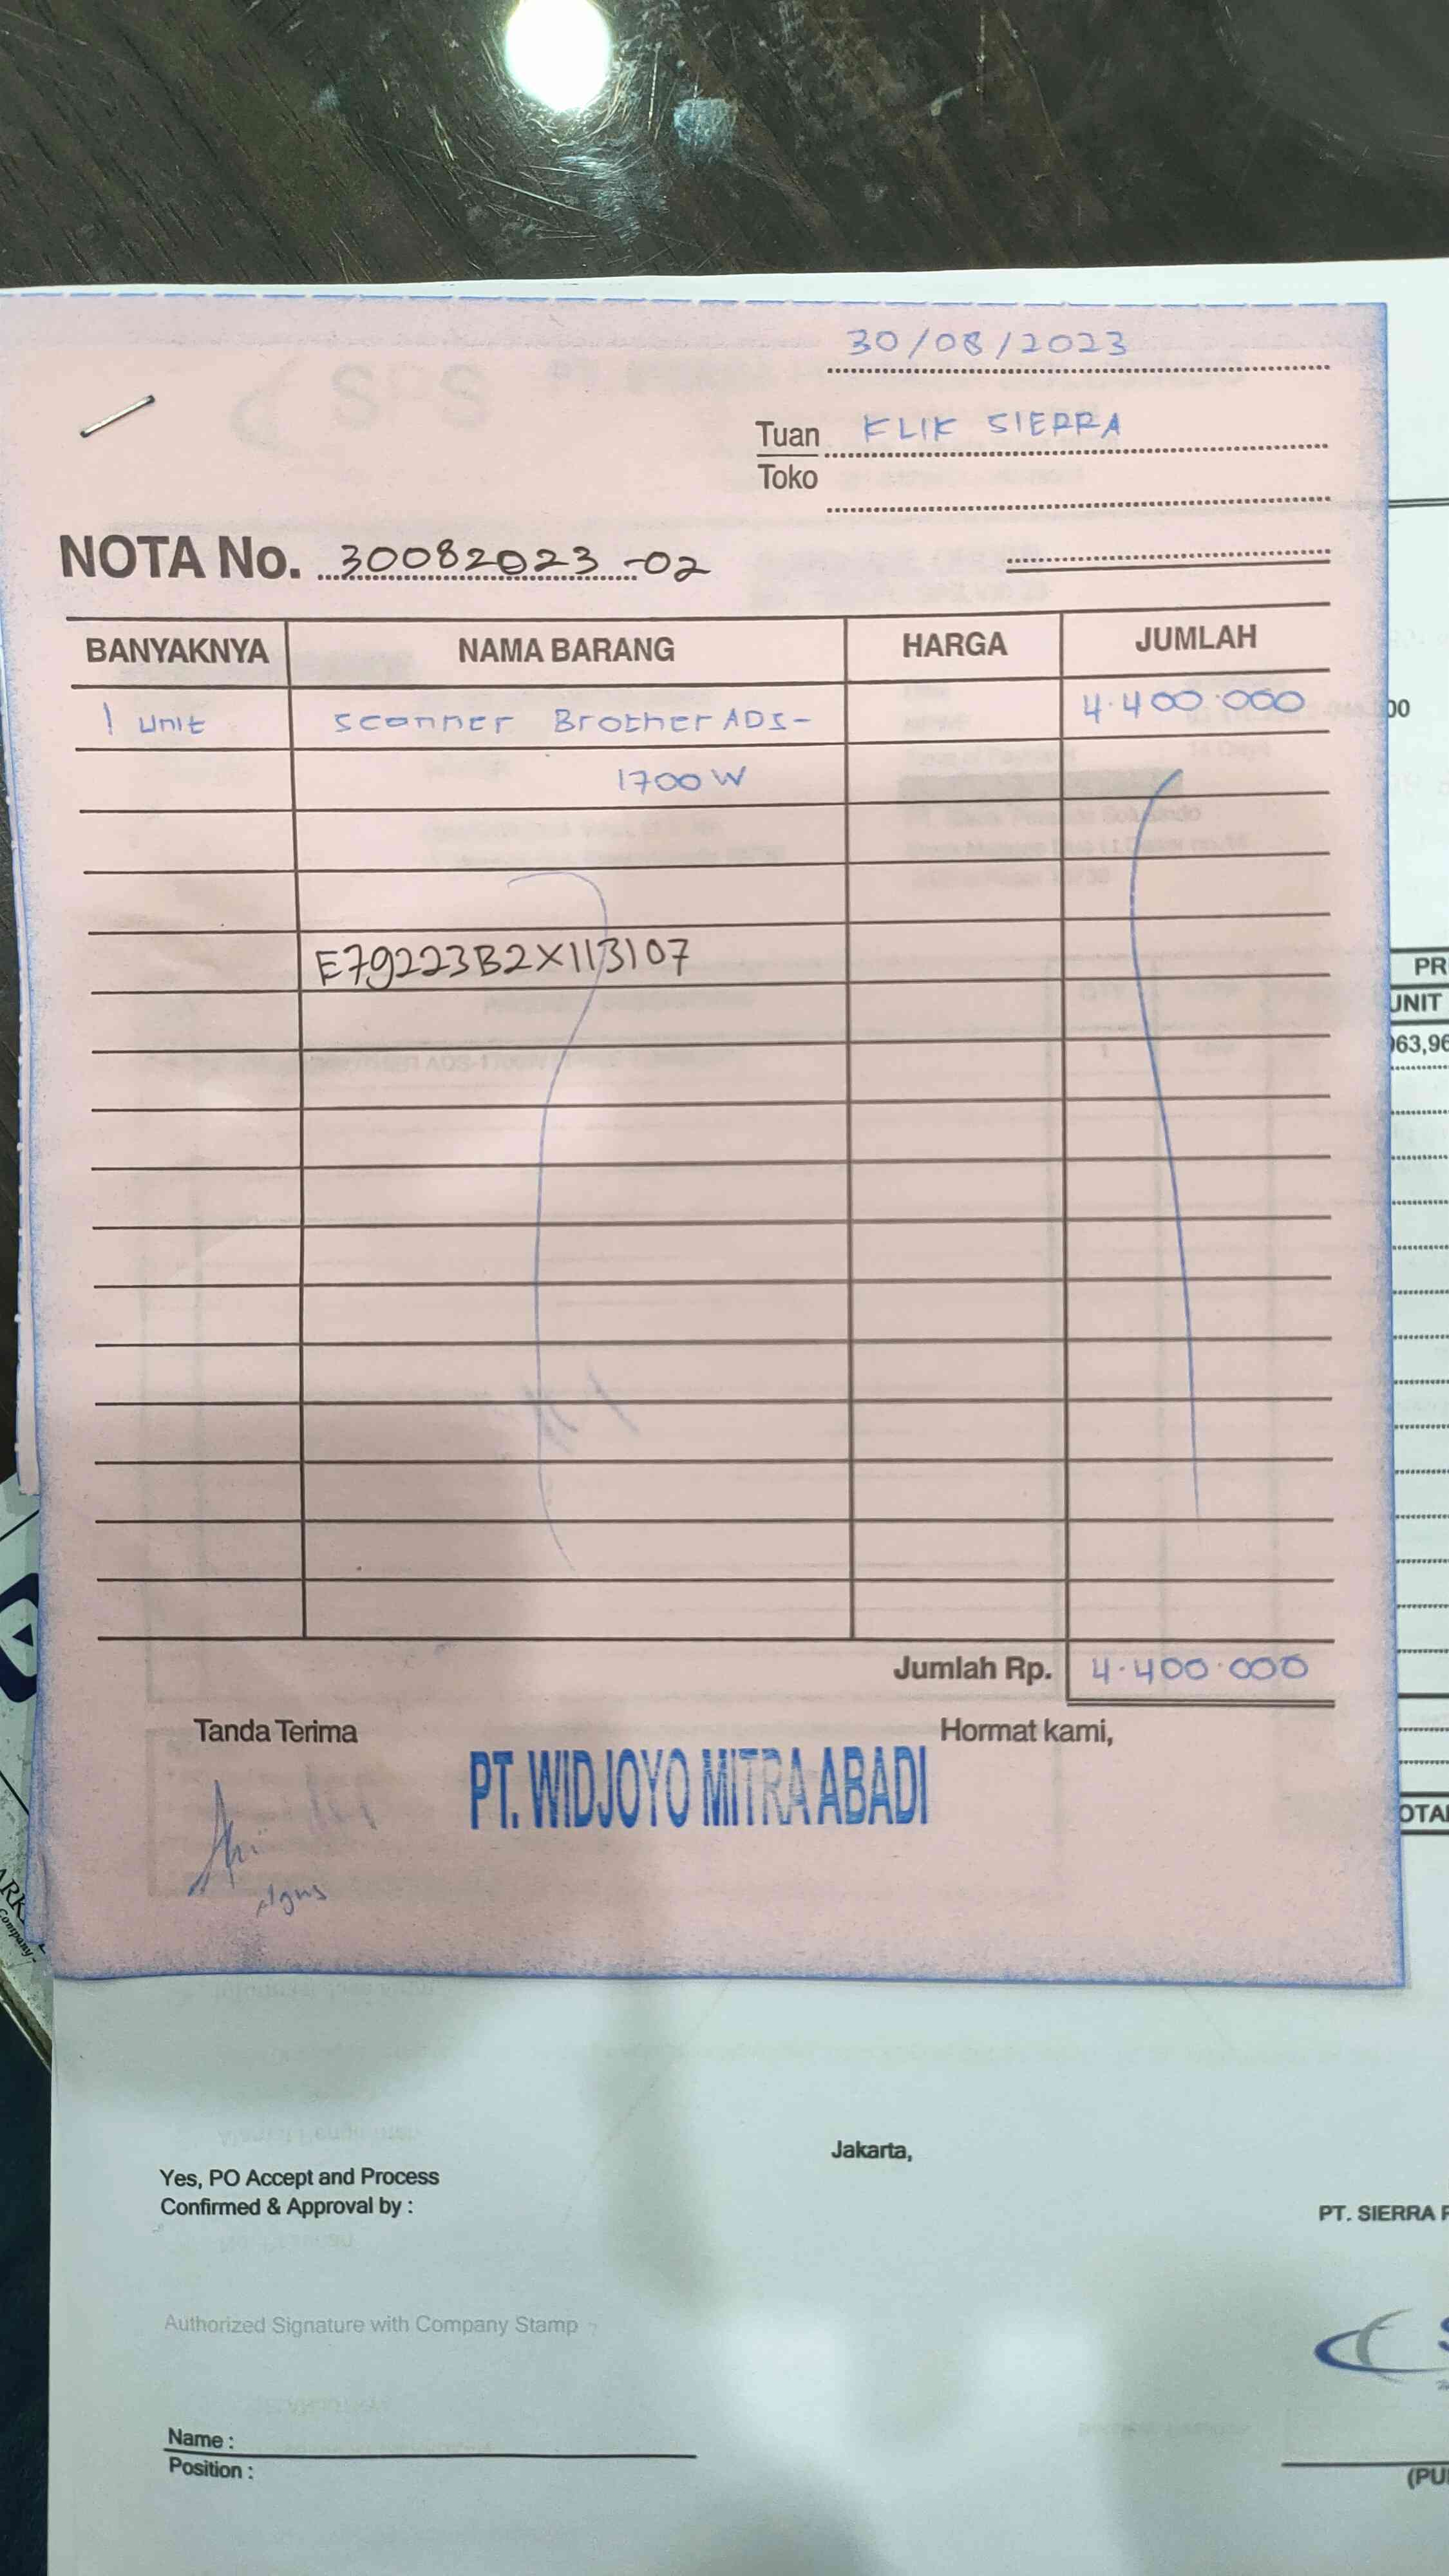 30/08/2023
Tuan KLIK SIERRA
Toko
NOTA No. 30082023-02
BANYAKNYA NAMA BARANG HARGA JUMLAH
1 unit scanner Brother ADS- 4.400.000
1700W
E79223B2X113107
Jumlah Rp. 4.400.000
Tanda Terima Hormat kami,
PT. WIDJOYO MITRA ABADI
Agus
00
PR
UNIT
963,96
OTA
Jakarta,
Yes, PO Accept and Process
Confirmed & Approval by :
PT. SIERRA P
Authorized Signature with Company Stamp
Name :
Position :
(PU